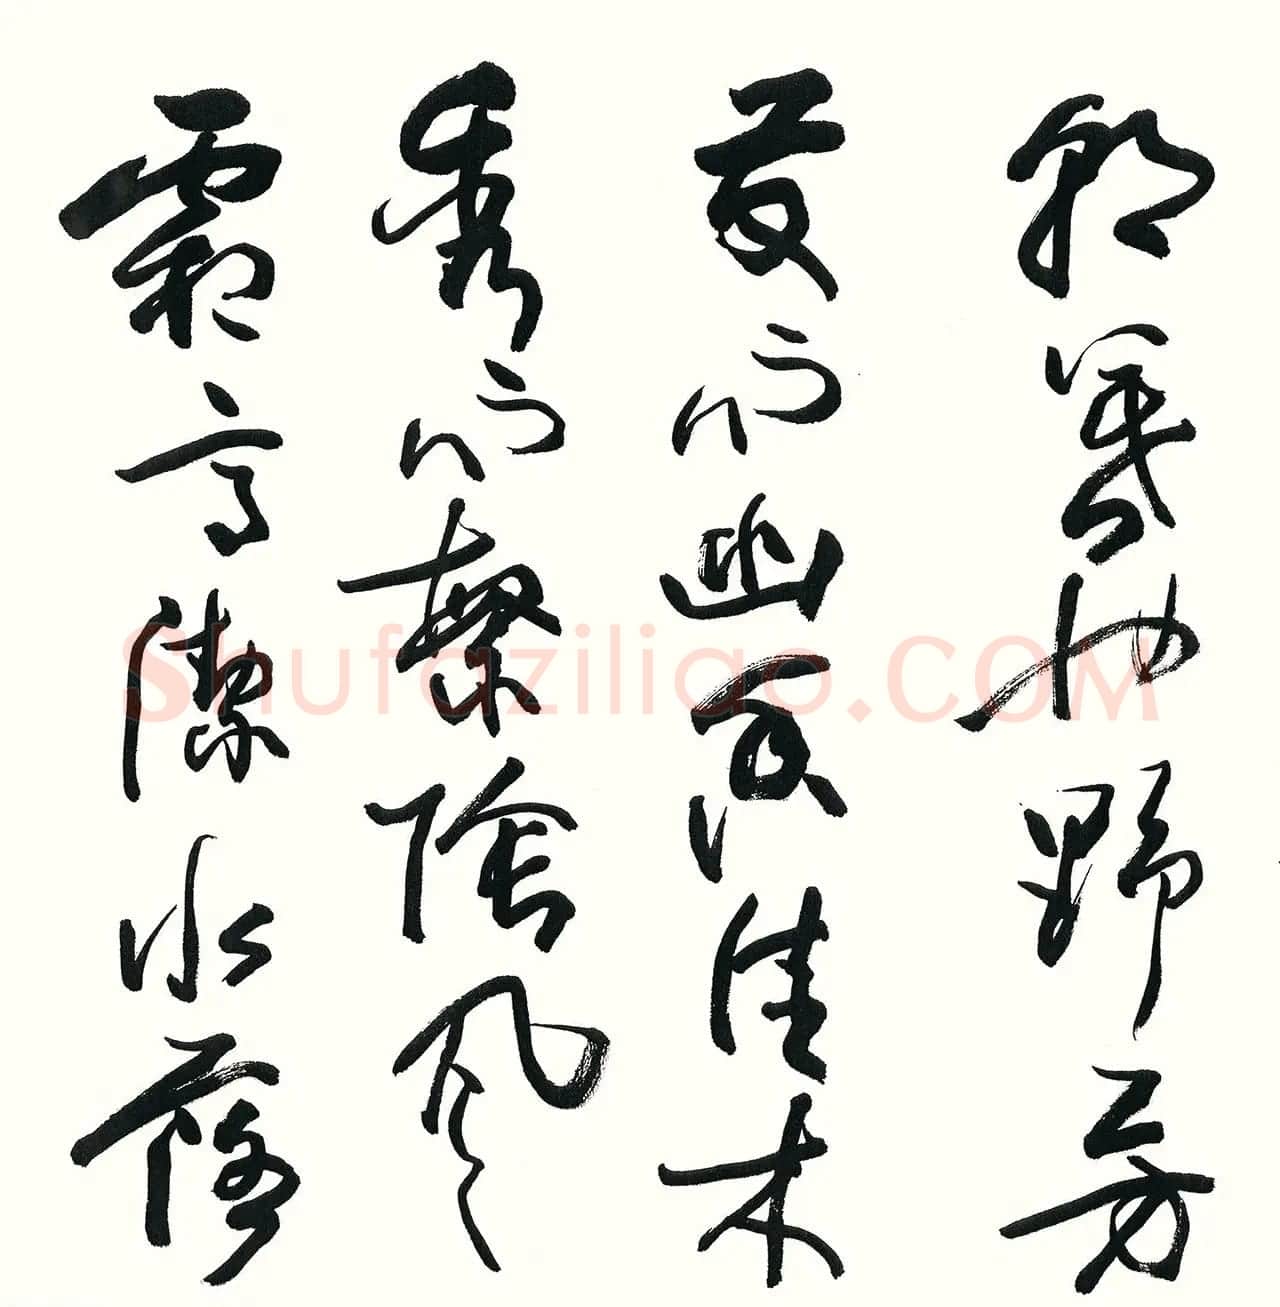 朝暮也野芳
發而幽香佳木
秀而繁陰風
霜高潔水落
Shufaziliao.COM